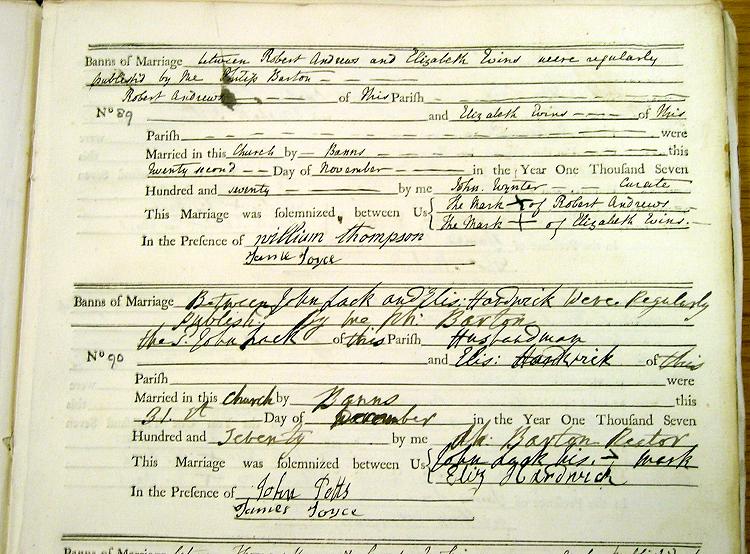 Banns of Marriage between Robert Andrews and Elizabeth Ewins were regularly
publish'd by me Philip Barton
Robert Andrews of this Parish
No 89 and Elizabeth Ewins of this
Parish were
Married in this Church by Banns this
twenty second Day of November in the Year One Thousand Seven
Hundred and seventy by me John Wynter Curate
This Marriage was solemnized between Us The Mark X of Robert Andrews
The Mark + of Elizabeth Ewins.
In the Presence of william thompson
James Joyce
Banns of Marriage Between John Lack and Elis: Hardwick Were Regularly
Publish by me Phi: Barton
the S. John Lack of this Parish Husbandman
No 90 and Elis: Hardwick of this
Parish were
Married in this Church by Banns this
31 st Day of December in the Year One Thousand Seven
Hundred and Seventy by me Ph: Barton Rector
This Marriage was solemnized between Us John Lack his mark
Eliz Hardwick
In the Presence of John Potts
James Joyce
Banns of Marriage